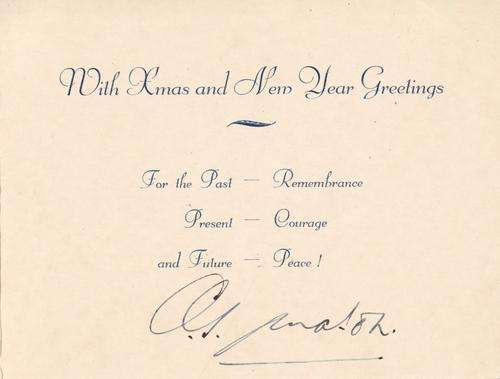 With Xmas and New Year Greetings
For the Past — Remembrance
Present — Courage
and Future — Peace !